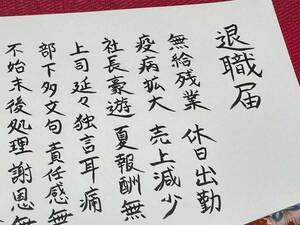 退職届
無給残業 休日出勤
疫病拡大 売上減少
社長豪遊 夏報酬無
上司延々独言耳痛
部下多文句責任感無
不始末後処理 謝恩無